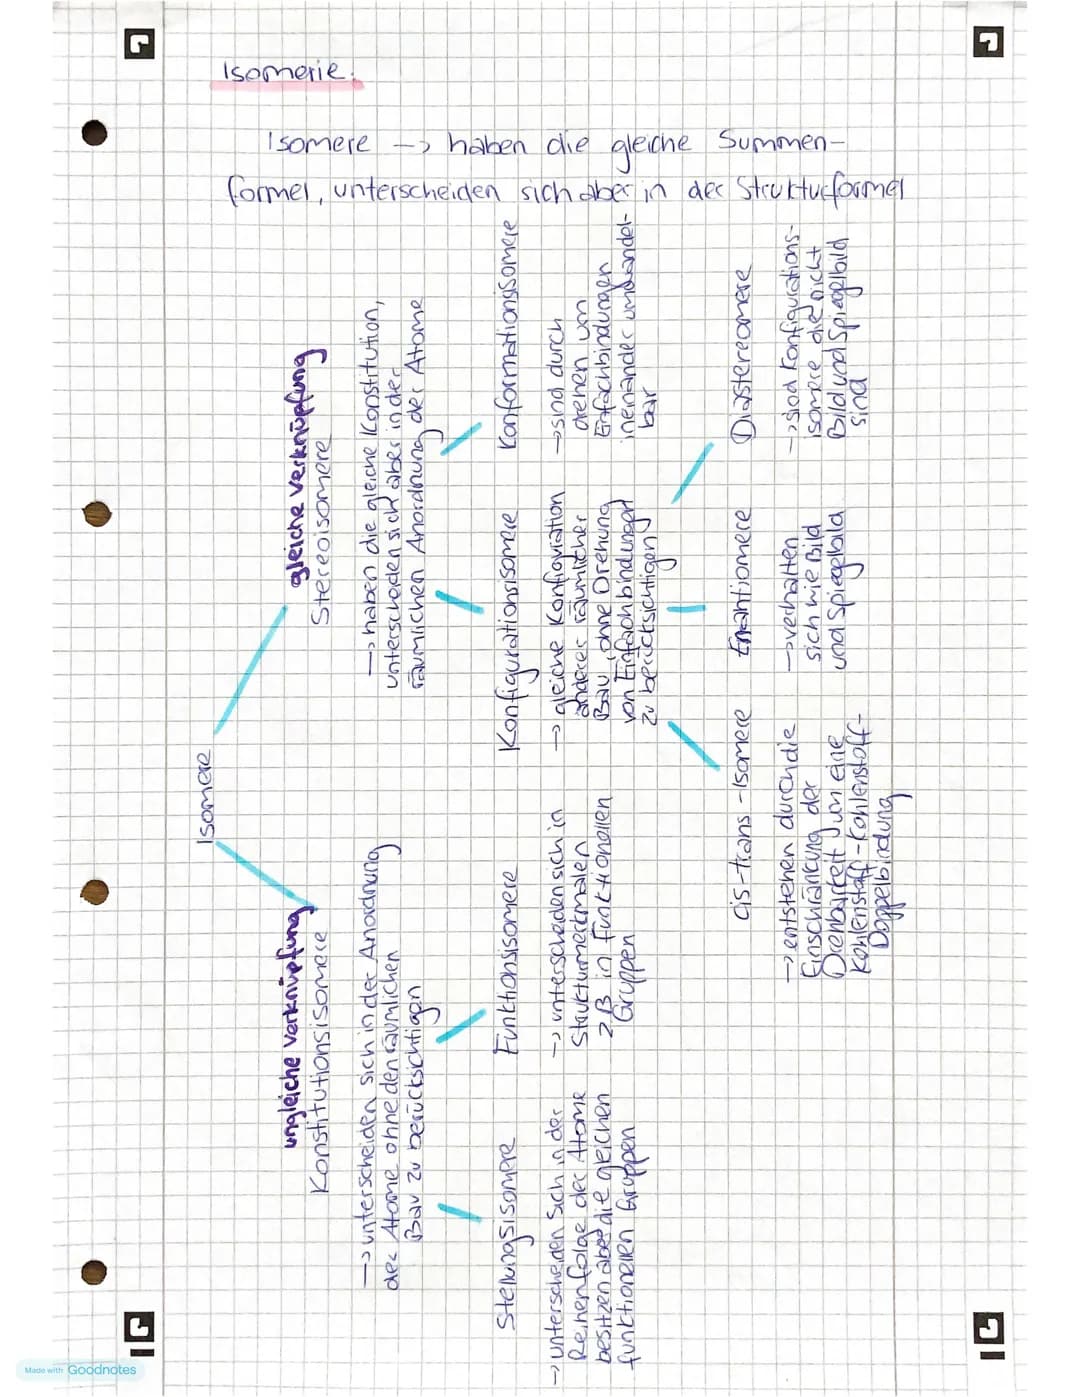 Isomerie.
Isomere -> haben die gleiche Summen-
formel, unterscheiden sich aber in der Strukturformel
Isomere
ungleiche Verknüpfung
Konstitutionsisomere
-> unterscheiden sich in der Anordnung
der Atome ohne den räumlichen
Bau zu berücksichtigen
gleiche Verknüpfung
Stereoisomere
-> haben die gleiche Konstitution,
unterscheden sich aber in der
räumlichen Anordnung der Atome
Stellungsisomere
-> unterscheiden sich in der
Reihenfolge der Atome
besitzen aber die gleichen
funktionellen Gruppen
Funktionsisomere
-> unterscheiden sich in
Strukturmerkmalen
z.B in Funktionellen
Gruppen
Konfigurationsisomere
-> gleiche Konfiguration
anderer räumlicher
Bau, ohne Drehung
von Einfachbindungen
zu berücksichtigen
Konformationgsomere
-> sind durch
drehen um
Einfachbindungen
ineinander umwandel-
bar
cis-trans-Isomere
-> entstehen durch die
Einschränkung der
Drehbarkeit um eine
Kohlenstoff-Kohlenstoff-
Doppelbindung
Enantiomere
-> verhalten
sich wie Bild
und Spiegelbild
Diastereomere
-> sind Konfigurations-
isomere die nicht
Bild und Spiegelbild
sind
Made with Goodnotes